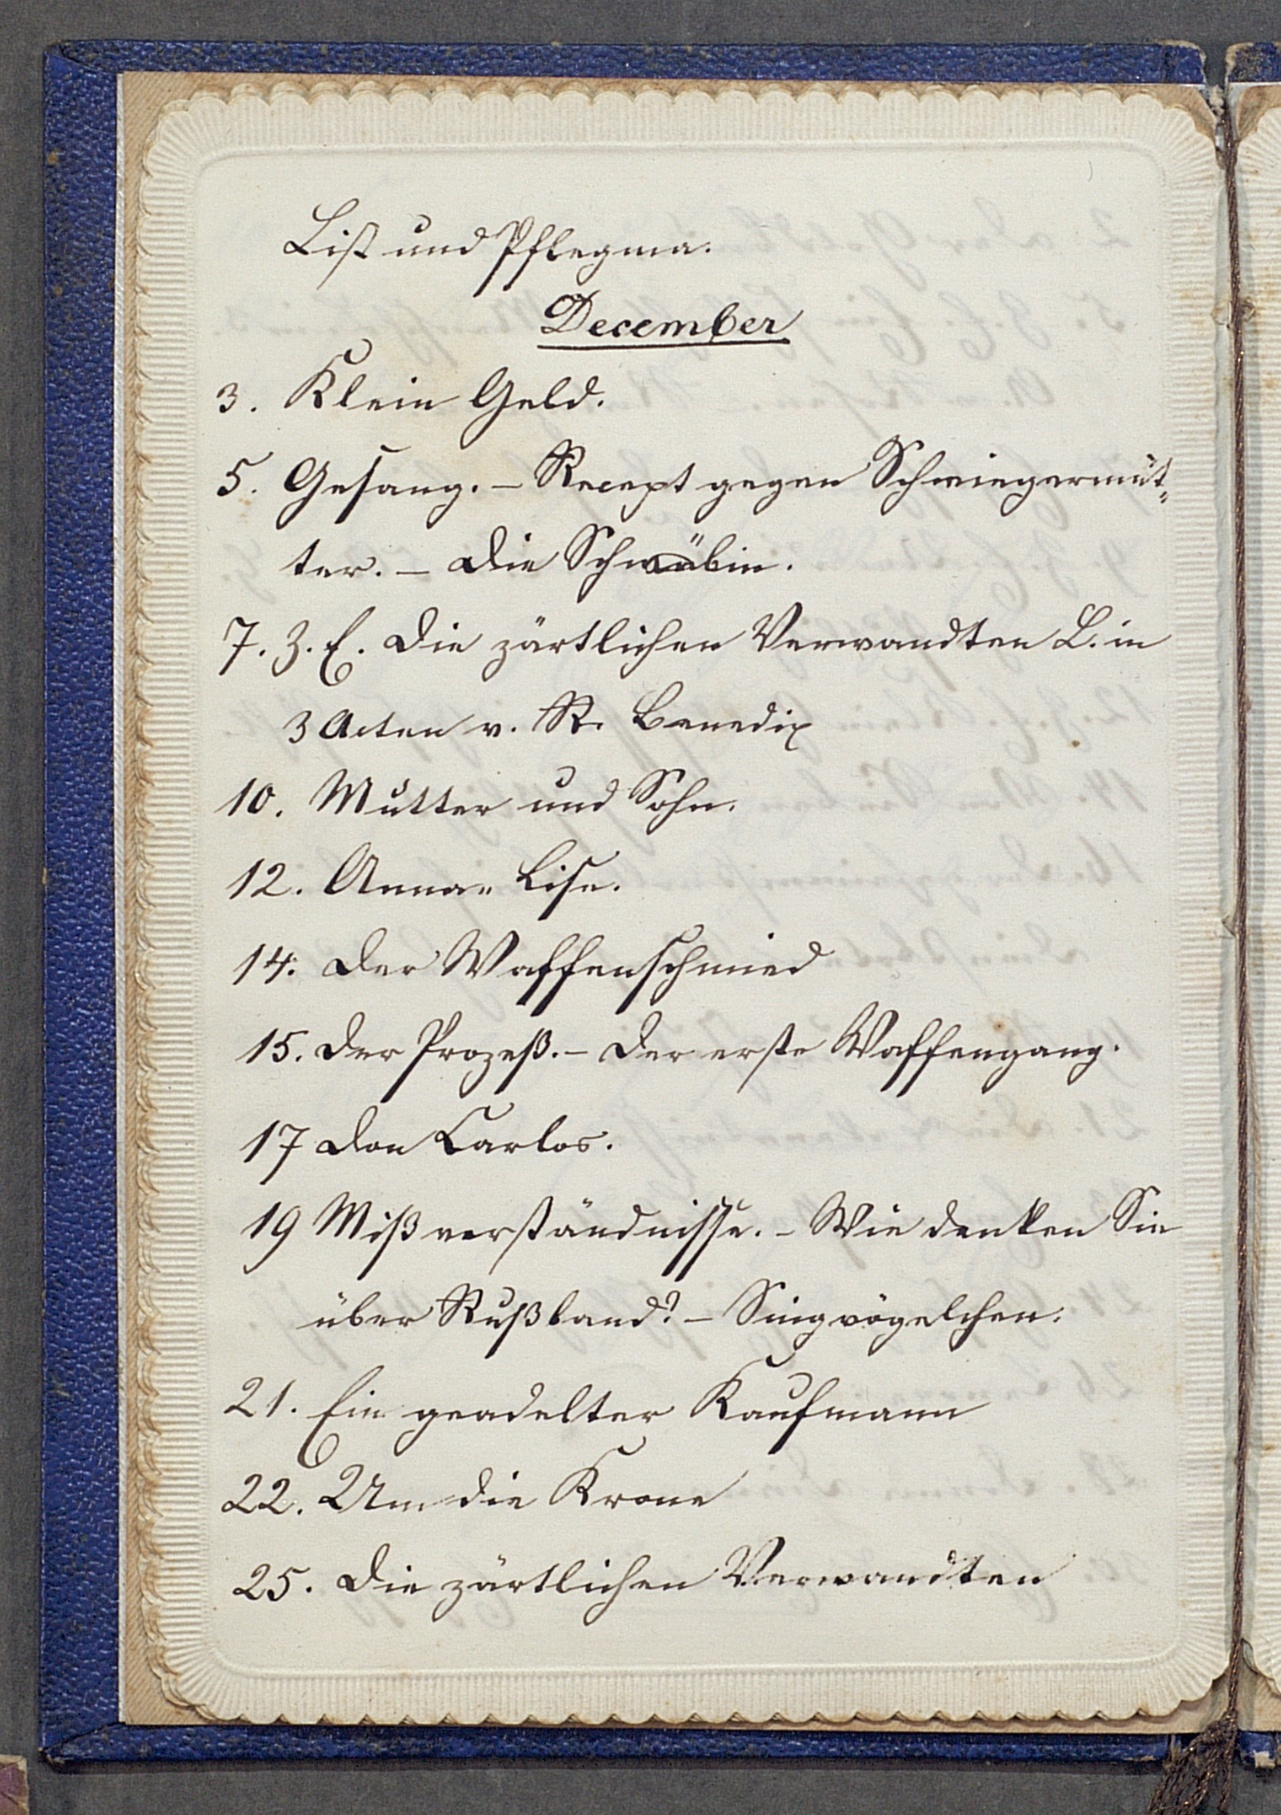 List und Pflegma.
December
3. Klein Geld.
5. Gesang. – Recept gegen Schwiegermüt„
ter. – Die Schwäbin.
7. Z. E. Die zärtlichen Verwandten L. in
3 Acten v. R. Benedix
10. Mutter und Sohn.
12. Anna„ Lise.
14. Der Waffenschmied
15. Der Prozeß. – Der erste Waffengang.
17 Don Carlos.
19 Mißverständnisse. – Wie denken Sie
über Rußland? – Singvögelchen.
21. Ein geadelter Kaufmann
22. Um die Krone
25. Die zärtlichen Verwandten